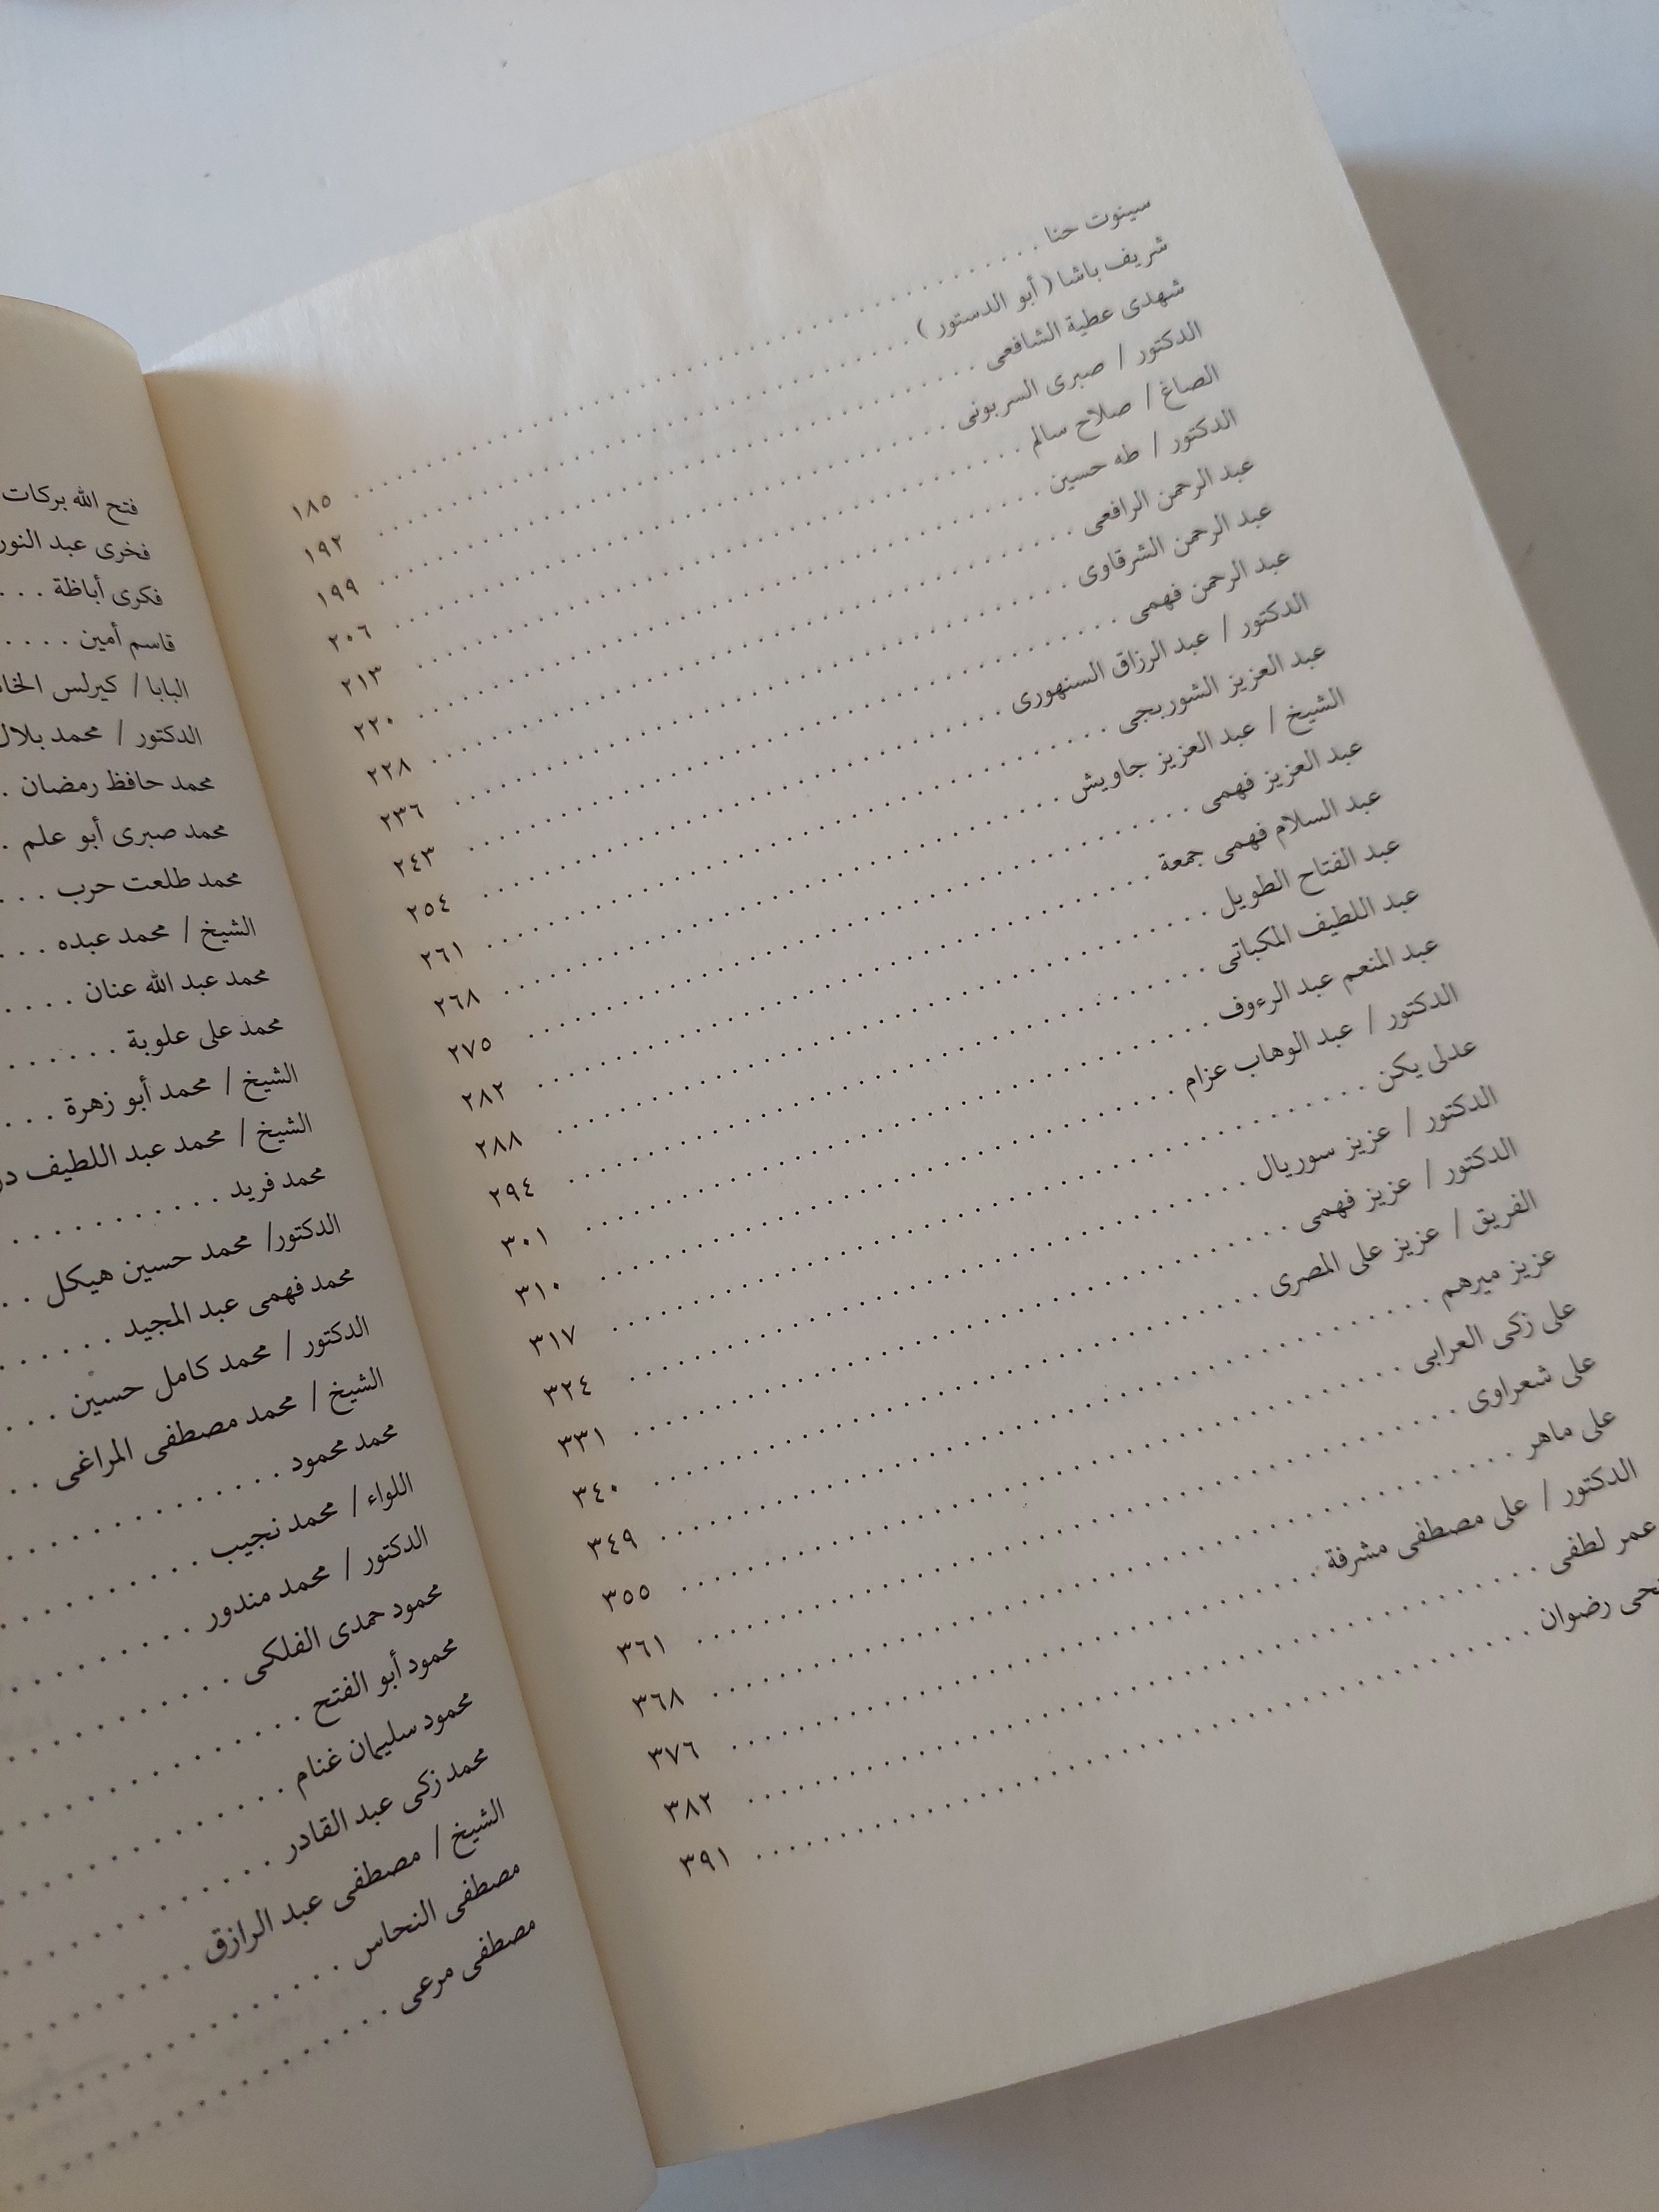 سينوت حنا . . . . . . . . . . ١٨٥
شريف باشا ( أبو الدستور ) . . . . . . . . . . ١٩٢
شهدى عطية الشافعى . . . . . . . . . . ١٩٩
الدكتور / صبرى السربونى . . . . . . . . . . ٢٠٦
الصاغ / صلاح سالم . . . . . . . . . . ٢١٣
الدكتور / طه حسين . . . . . . . . . . ٢٢٠
عبد الرحمن الرافعى . . . . . . . . . . ٢٢٨
عبد الرحمن الشرقاوى . . . . . . . . . . ٢٣٦
عبد الرحمن فهمى . . . . . . . . . . ٢٤٣
الدكتور / عبد الرزاق السنهورى . . . . . . . . . . ٢٥٤
عبد العزيز الشوربجى . . . . . . . . . . ٢٦١
الشيخ / عبد العزيز جاويش . . . . . . . . . . ٢٦٨
عبد العزيز فهمى . . . . . . . . . . ٢٧٥
عبد السلام فهمى جمعة . . . . . . . . . . ٢٨٢
عبد الفتاح الطويل . . . . . . . . . . ٢٨٨
عبد اللطيف المكباتى . . . . . . . . . . ٢٩٤
عبد المنعم عبد الرءوف . . . . . . . . . . ٣٠١
الدكتور / عبد الوهاب عزام . . . . . . . . . . ٣١٠
عدلى يكن . . . . . . . . . . ٣١٧
الدكتور / عزيز سوريال . . . . . . . . . . ٣٢٤
الدكتور / عزيز فهمى . . . . . . . . . . ٣٣١
الفريق / عزيز على المصرى . . . . . . . . . . ٣٤٠
عزيز ميرهم . . . . . . . . . . ٣٤٩
على زكى العرابى . . . . . . . . . . ٣٥٥
على شعراوى . . . . . . . . . . ٣٦١
على ماهر . . . . . . . . . . ٣٦٨
الدكتور / على مصطفى مشرفة . . . . . . . . . . ٣٧٦
عمر لطفى . . . . . . . . . . ٣٨٢
رضوان . . . . . . . . . . ٣٩١
فتح الله بركات
فخرى عبد النور
فكرى أباظة . . .
قاسم أمين . . . . .
البابا / كيرلس
الدكتور / محمد بلال
محمد حافظ رمضان .
محمد صبرى أبو علم .
محمد طلعت حرب . . .
الشيخ / محمد عبده . . .
محمد عبد الله عنان . . . .
محمد على علوبة . . . . . .
الشيخ / محمد أبو زهرة . . .
الشيخ / محمد عبد اللطيف
محمد فريد . . . . . . . . . .
الدكتور/ محمد حسين هيكل . .
محمد فهمى عبد المجيد . . . . . .
الدكتور / محمد كامل حسين . . .
الشيخ / محمد مصطفى المراغى . .
محمد محمود . . . . . . . . . .
اللواء / محمد نجيب . . . . . . . .
الدكتور / محمد مندور . . . . . . . .
محمود حمدى الفلكى . . . . . . . .
محمود أبو الفتح . . . . . . . . . .
محمود سليمان غنام . . . . . . . . . .
محمد زكى عبد القادر . . . . . . . . . .
الشيخ / مصطفى عبد الرازق . . . . . . .
مصطفى النحاس . . . . . . . . . .
مصطفى مرعى . . . . . . . . . .